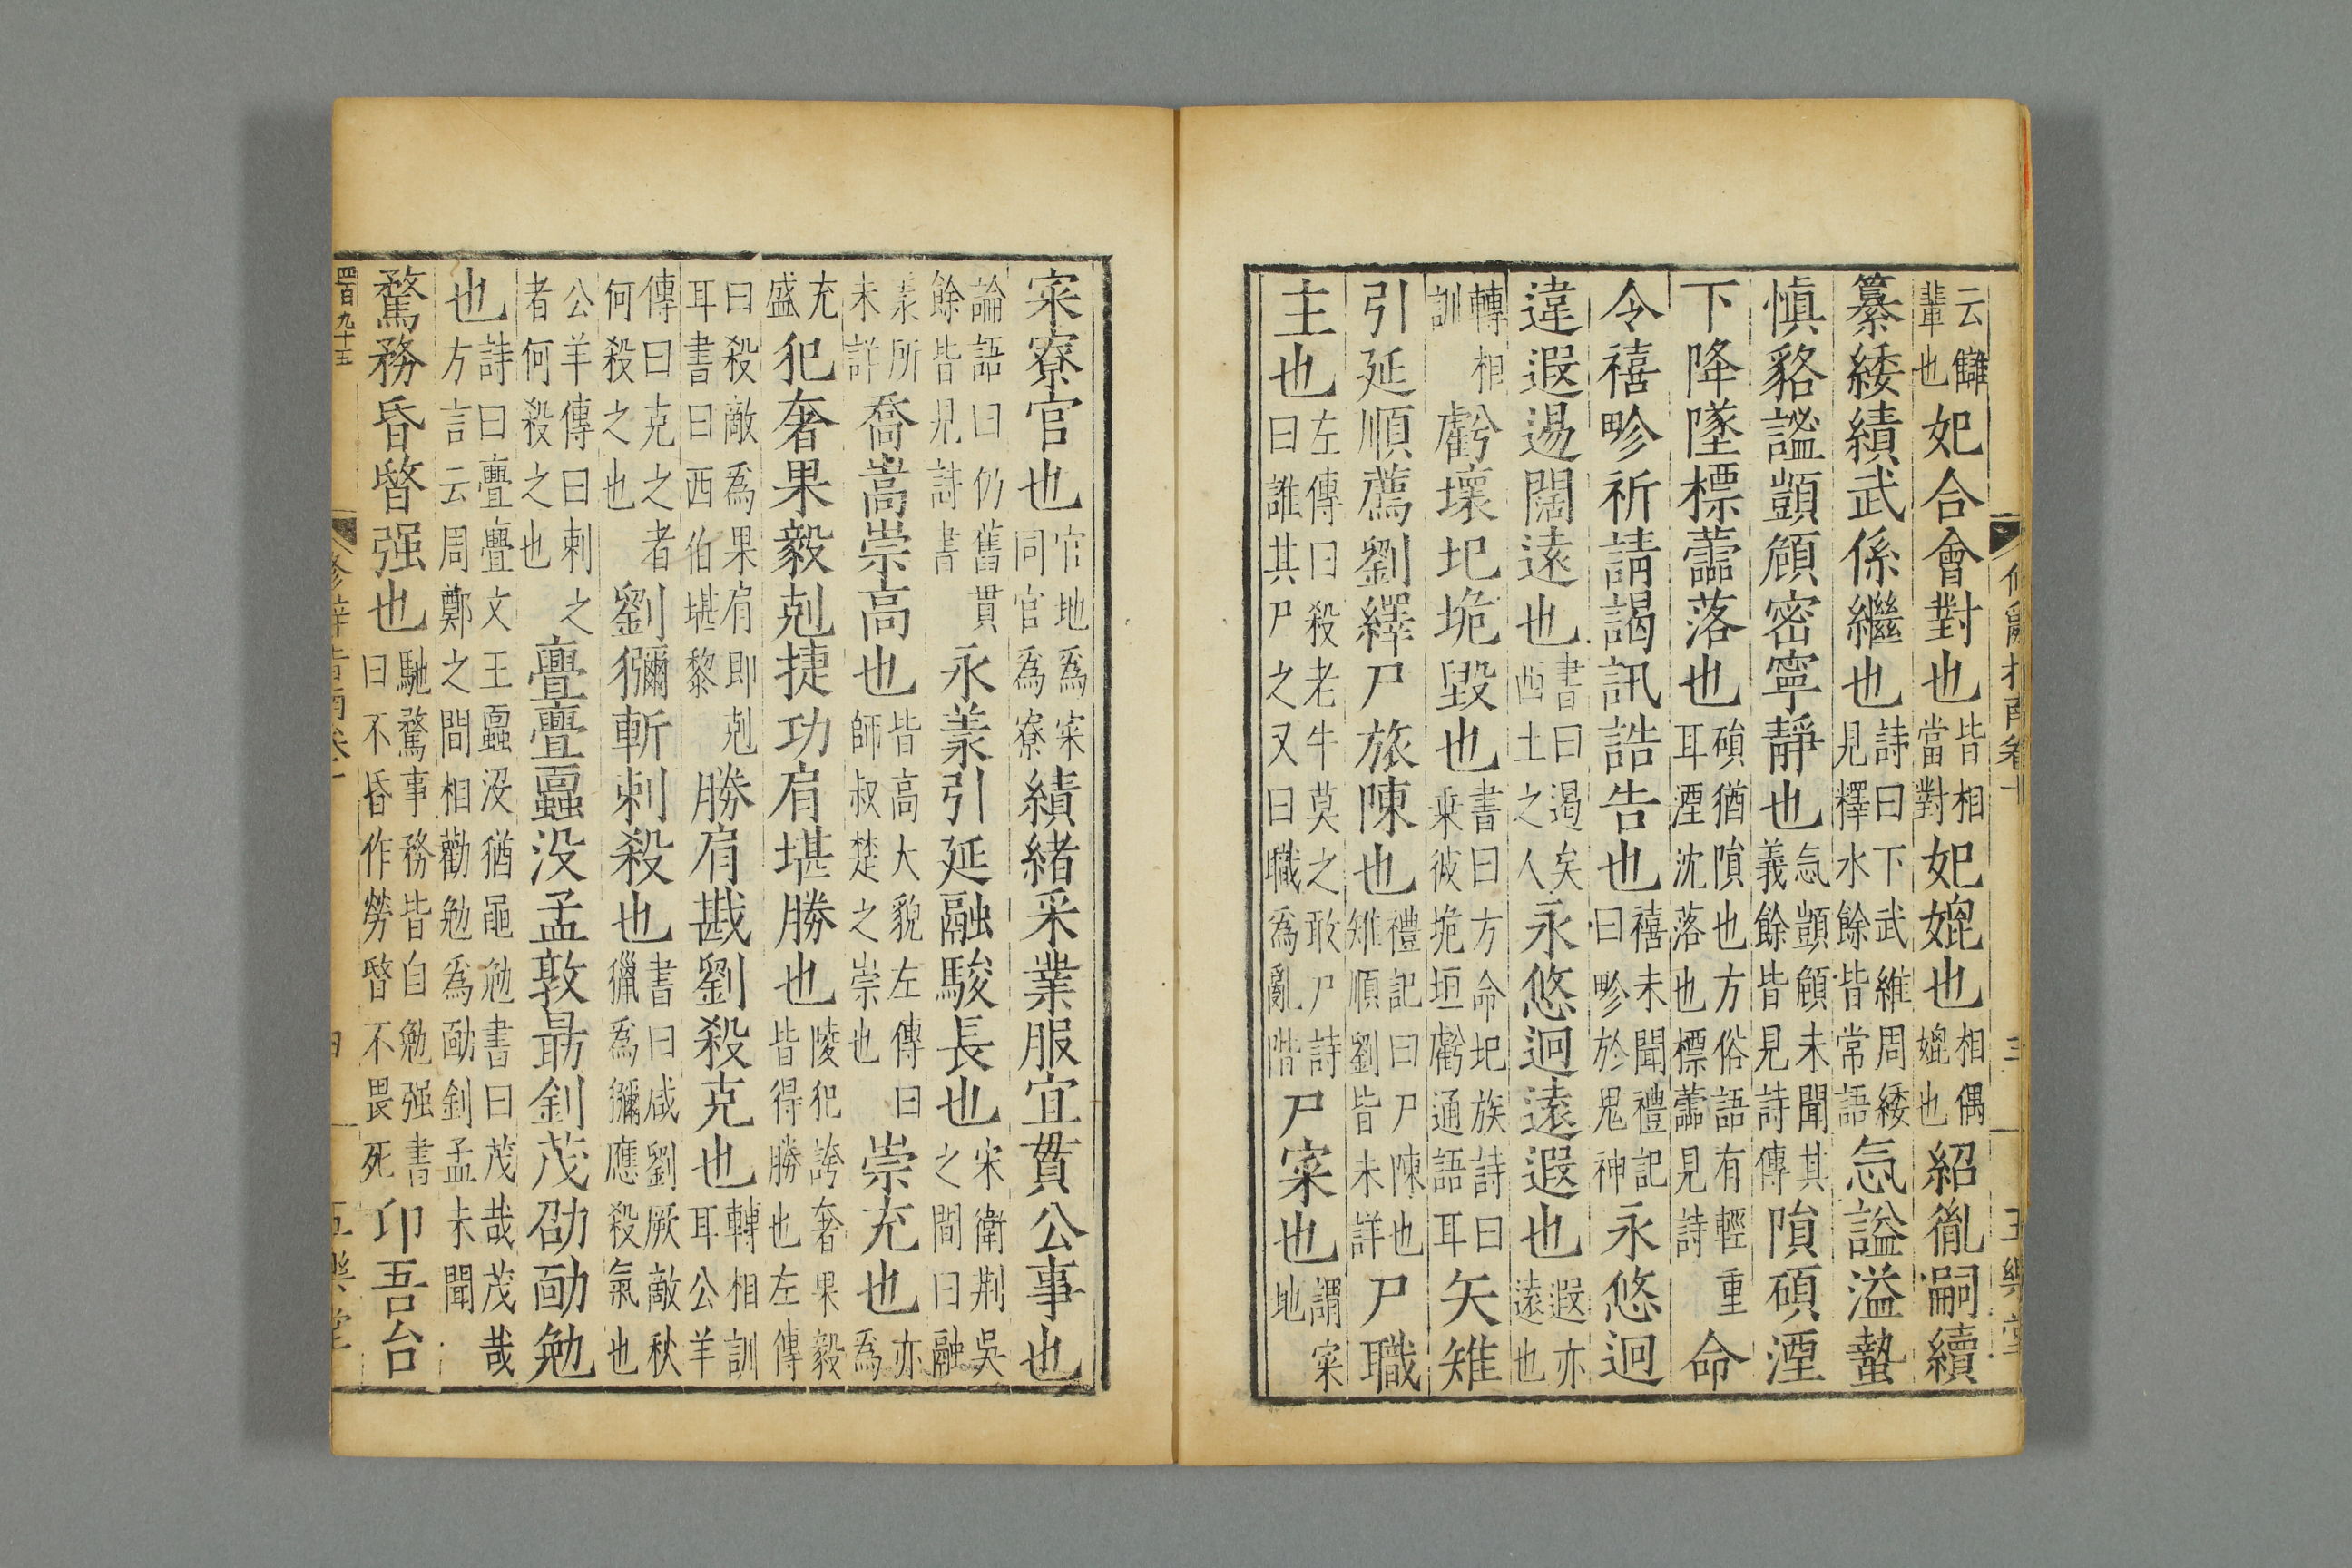 云讎輩也妃合會對也皆相當對妃媲也相偶媲也紹胤嗣續
纂緌績武係繼也詩曰下武維周緌見釋水餘皆常語忥謐溢蟄
慎貉謐顗頠密寧靜也忥顗頠未聞其義餘皆見詩傳隕磒湮
下降墜標蘦落也磒猶隕也方俗語有輕重耳湮沈落也標蘦見詩命
令禧畛祈請謁訊誥告也禧未聞禮記曰畛於鬼神永悠迥
違遐逷闊遠也書曰逷矣西土之人永悠迥遠遐也遐亦遠也
轉相訓虧壞圮垝毀也書曰方命圮族詩曰乘彼垝垣虧通語耳矢雉
引延順薦劉繹尸旅陳也禮記曰尸陳也雉順劉皆未詳尸職
主也左傳曰殺老牛莫之敢尸詩曰誰其尸之又曰職爲亂階尸寀也謂寀地
寀寮官也官地爲寀同官爲寮績緒采業服宜貫公事也
論語曰仍舊貫餘皆見詩書永羕引延融駿長也宋衛荆吳之間曰融
羕所未詳喬嵩崇高也皆高大貌左傳曰師叔楚之崇也崇充也亦爲
充盛犯奢果毅剋捷功肩堪勝也陵犯誇奢果毅皆得勝也左傳
曰殺敵爲果肩即剋耳書曰西伯堪黎勝肩戡劉殺克也轉相訓耳公羊
傳曰克之者何殺之也劉獮斬刺殺也書曰咸劉厥敵秋獵爲獮應殺氣也
公羊傳曰刺之者何殺之也亹亹蠠没孟敦勗釗茂劭勔勉
也詩曰亹亹文王蠠没猶黽勉書曰茂哉茂哉方言云周鄭之間相勸勉爲勔釗孟未聞
騖務昏暋强也馳騖事務皆自勉强書曰不昏作勞暋不畏死卬吾台
四百九十五